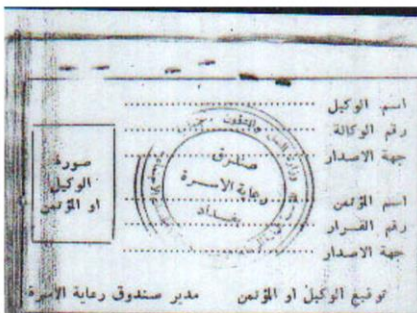 اسم الوكيل
رقم الوكالة
جهة الاصدار
اسم المؤتمن
رقم القرار
جهة الاصدار
صورة
الوكيل
او المؤتمن
صندوق
رعاية الاسرة
بغداد
توقيع الوكيل او المؤتمن مدير صندوق رعاية الاسرة